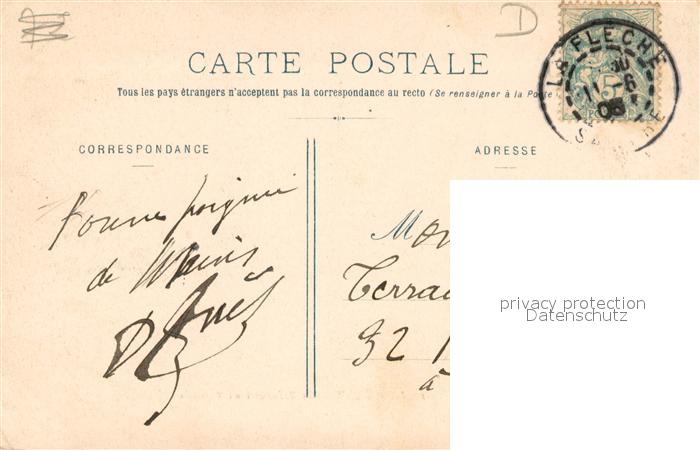 D
CARTE POSTALE
Tous les pays étrangers n'acceptent pas la correspondance au recto (Se renseigner à la Poste)
LA FLECHE
5
05
CORRESPONDANCE
ADRESSE
Bonne poignée
de Mains
Mon
Terra
32
à
privacy protection
Datenschutz